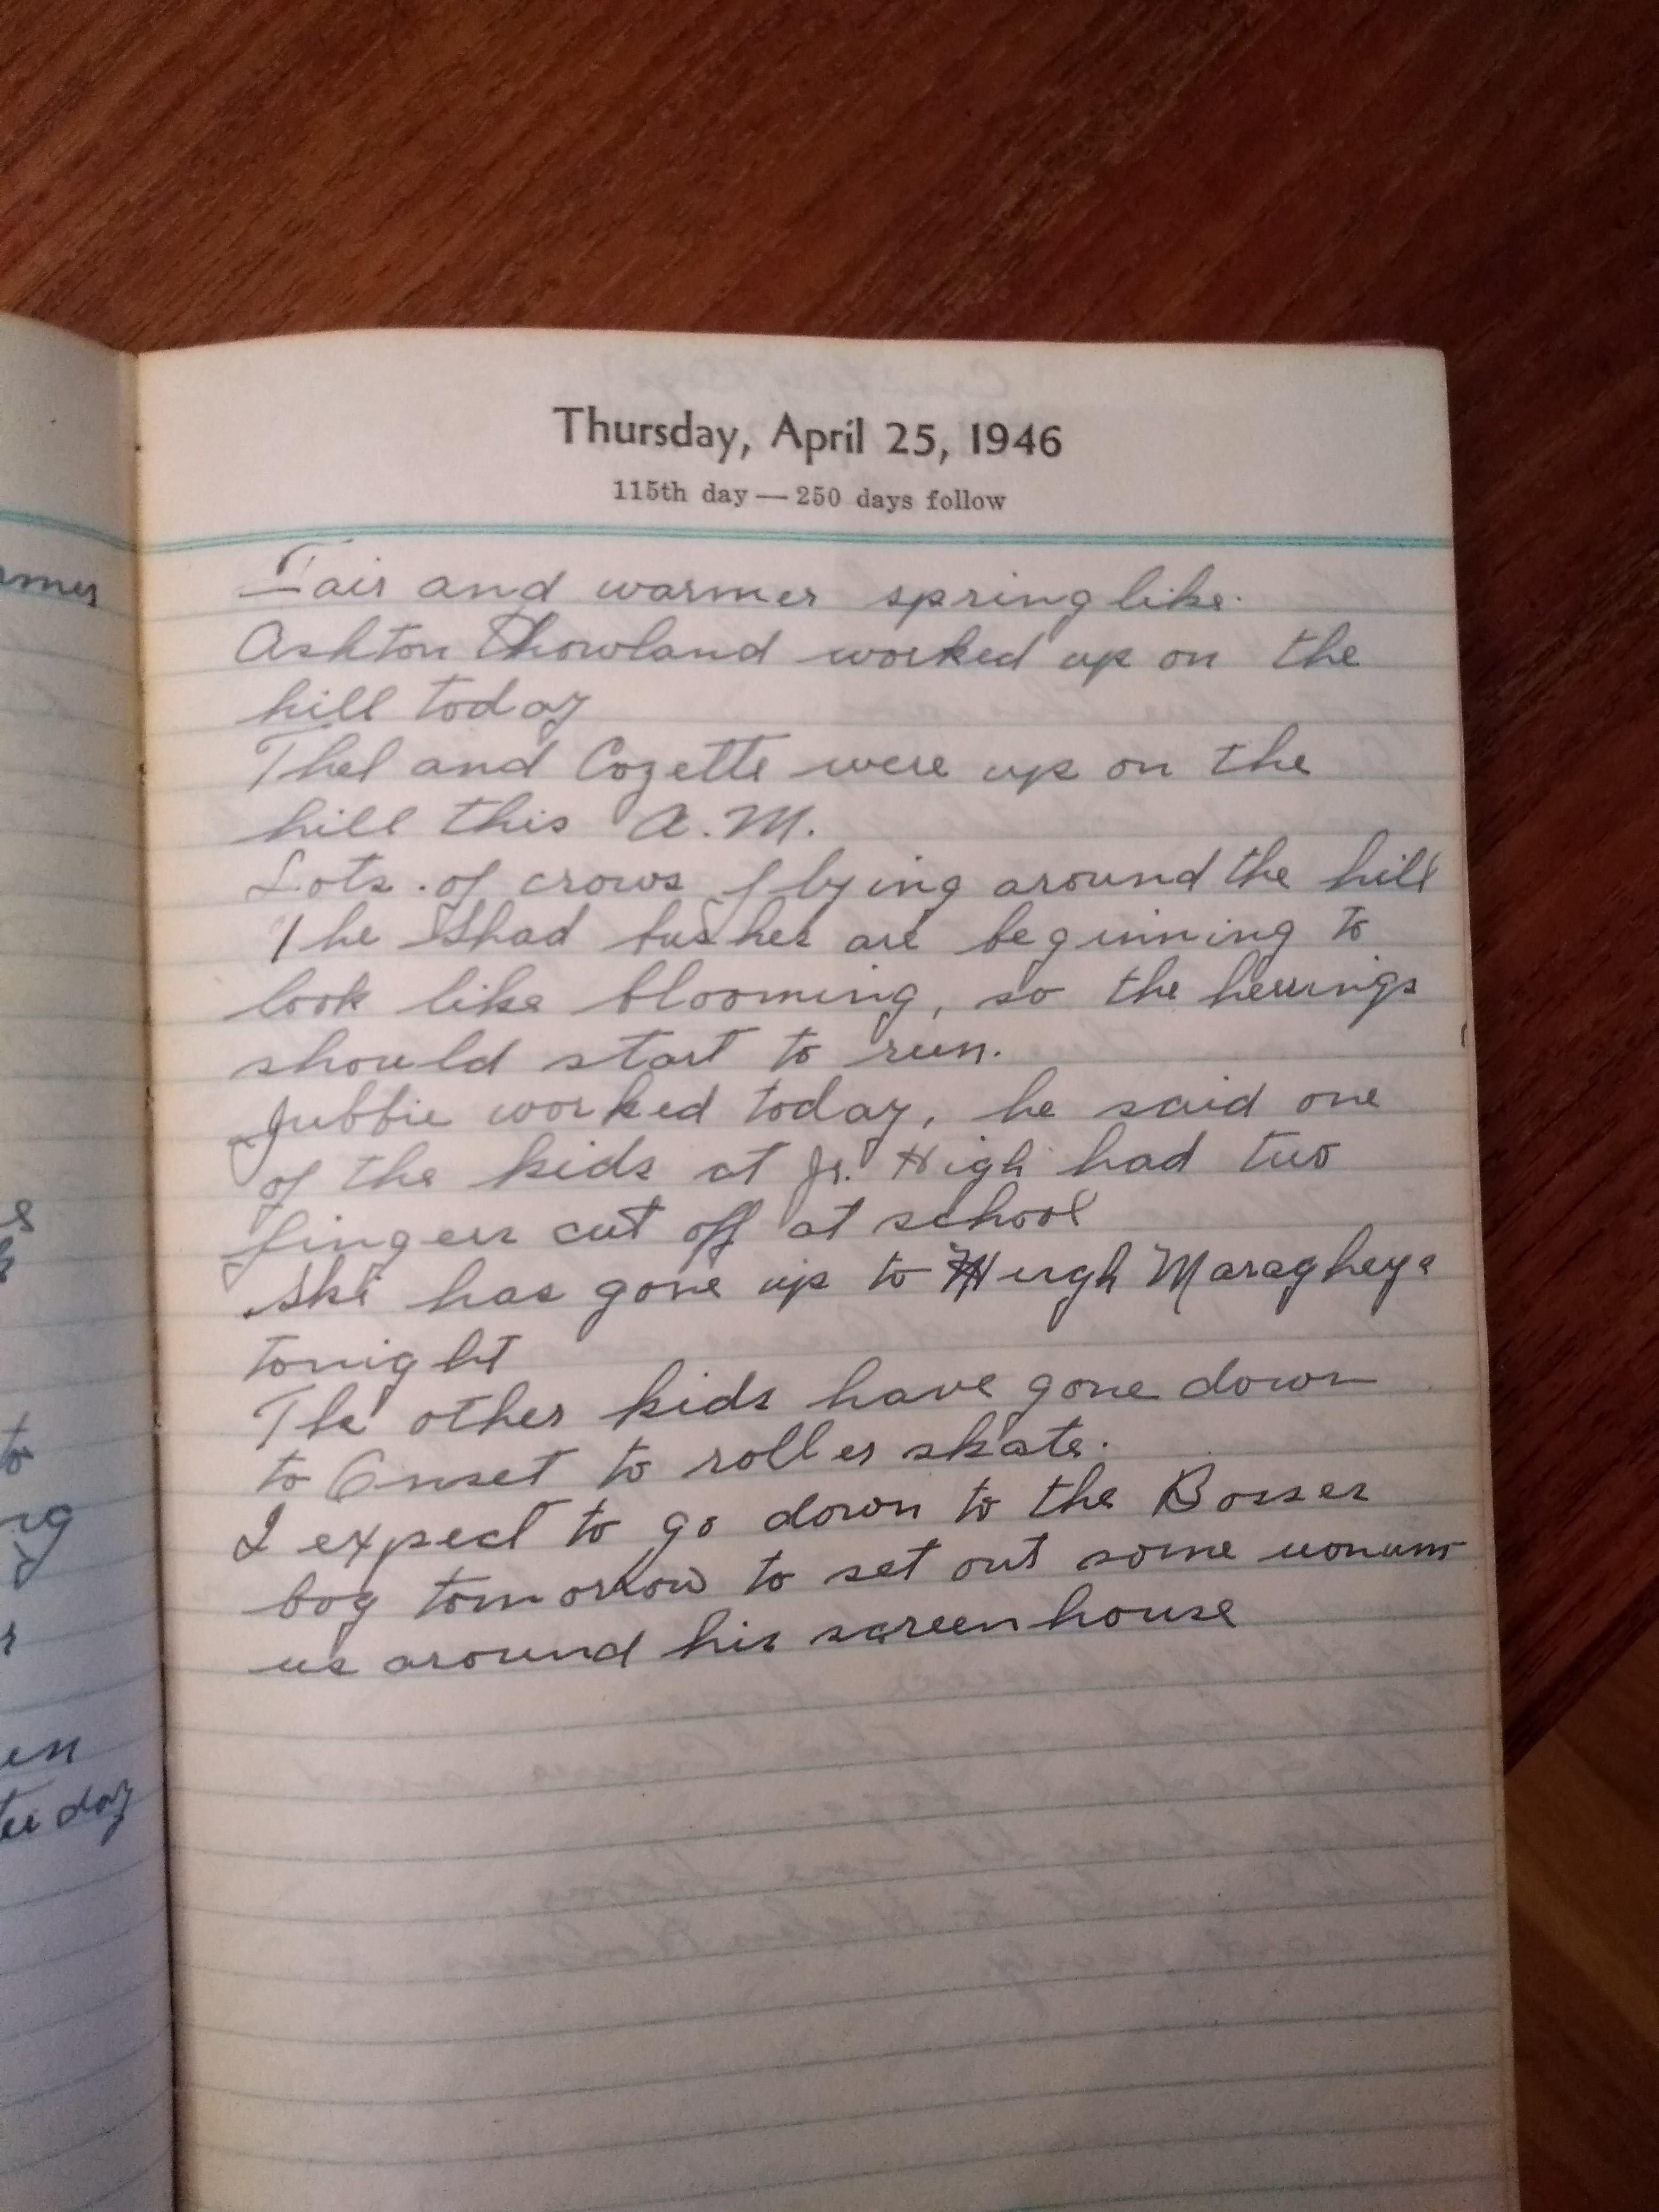 Thursday, April 25, 1946
115th day — 250 days follow
Fair and warmer spring like.
Ashton Showland worked up on the
hill today
Thel and Cozette were up on the
hill this A.M.
Lots of crows flying around the hill
The Shad bushes are beginning to
look like blooming, so the herrings
should start to run.
Jubbie worked today, he said one
of the kids at Jr. High had two
fingers cut off at school
Ski has gone up to Hugh Maragheys
tonight
The other kids have gone down
to Onset to roller skate.
I expect to go down to the Bosses
bog tomorrow to set out some
us around his screenhouse
rmer
s
to
ng
d
r
en
day